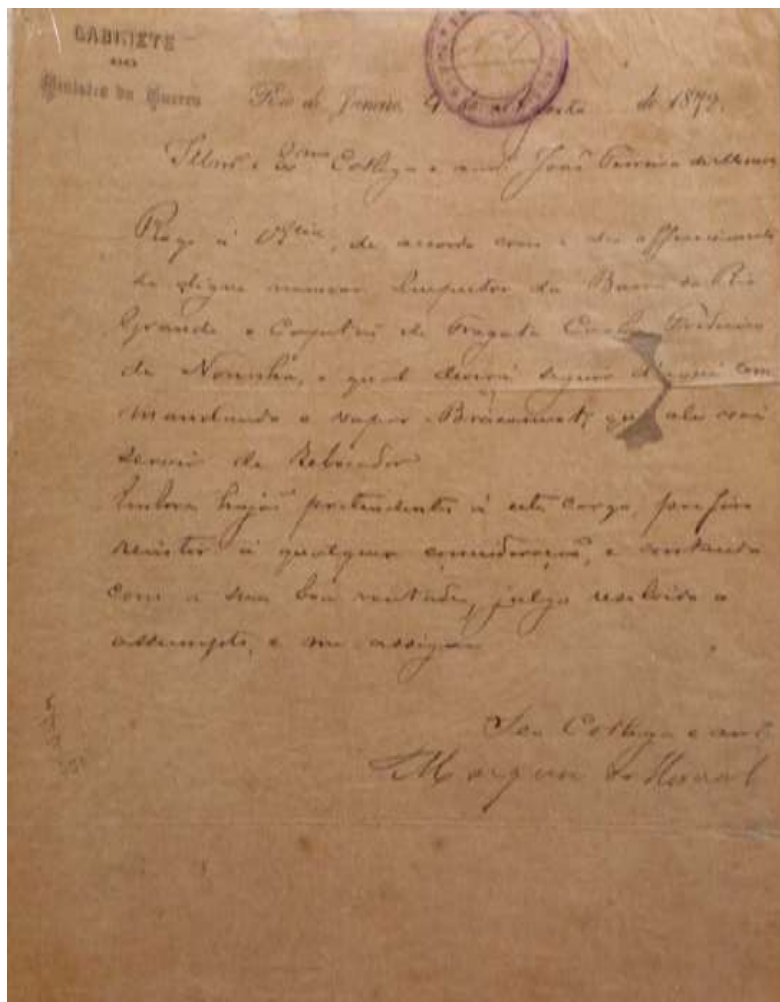 GABINETE
DO
Ministro da Guerra
Rio de Janeiro, 9 de Agosto de 1879.
Illmo e Exmo Collega e am.º João Ferreira de Moura
Rogo á V. Excia, de accordo com o seu offerecimento
se digne nomear Inspector da Barra do Rio
Grande o Capitão de Fragata Carlos Frederico
de Noronha, o qual deverá seguir d'aqui com
mandando o vapor Bracconnot, que ali vai
servir de Rebocador
Embora hajão pretendentes á este cargo, prefiro
resistir á qualquer consideração, e contando
com a sua boa vontade, julgo resolvido o
assumpto, e me assigno
Seu Collega e am.º
Marquez do Herval